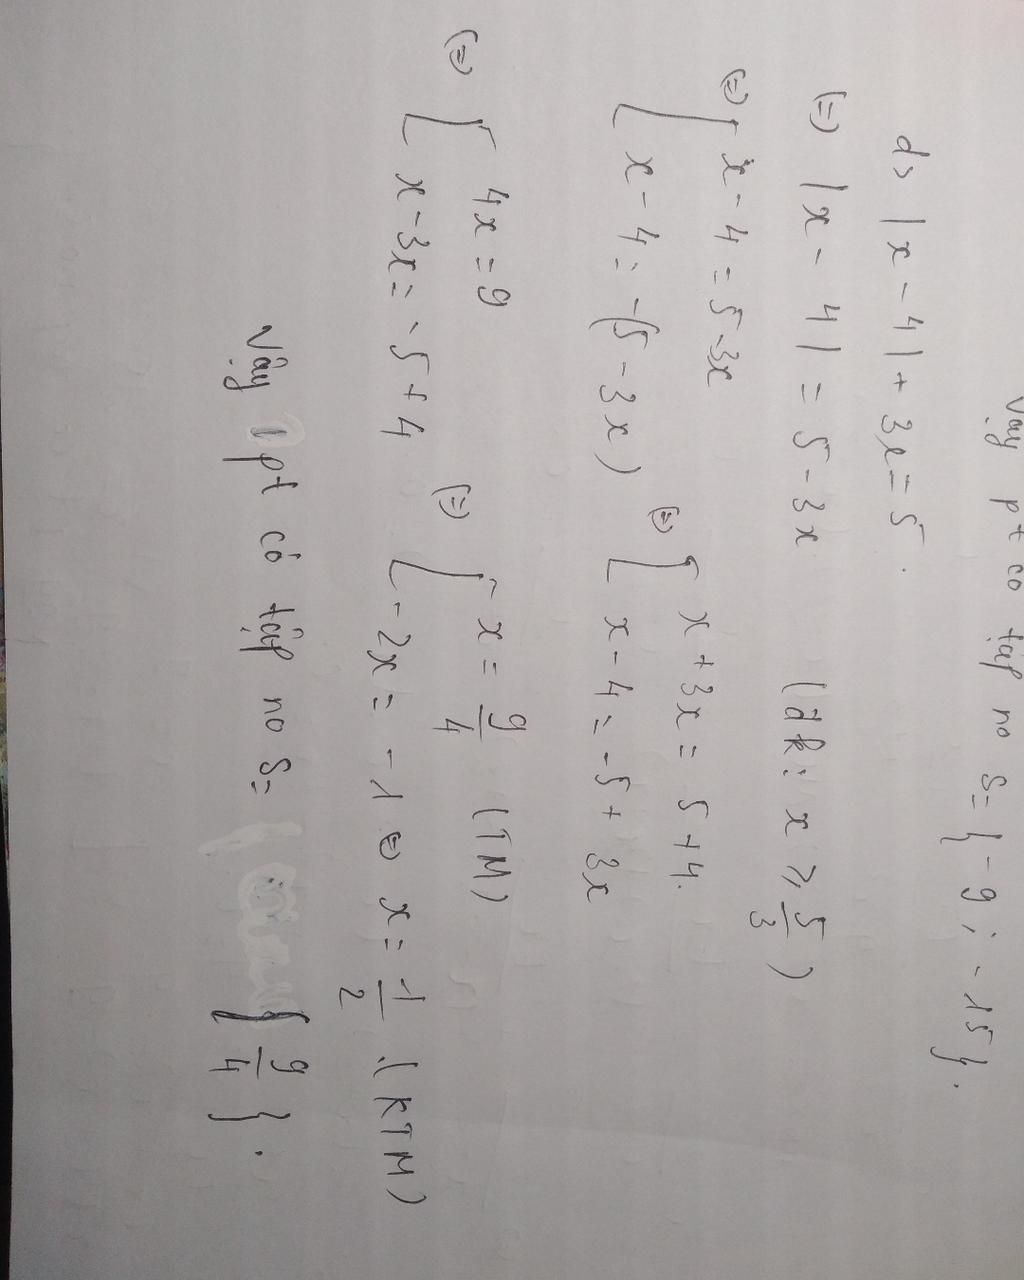 Vậy pt có tập no S = { -9 ; -15 }.
d> |x - 4| + 3x = 5.
(=) |x - 4| = 5 - 3x (đk: x ⩾ 5/3)
(=) [ x - 4 = 5 - 3x
[ x - 4 = -(5 - 3x)
(=) [ x + 3x = 5 + 4.
[ x - 4 = -5 + 3x
(=) [ 4x = 9
[ x - 3x = -5 + 4
(=) [ x = 9/4 (TM)
[ -2x = -1 (=) x = 1/2 .(KTM)
Vậy pt có tập no S = { 9/4 }.